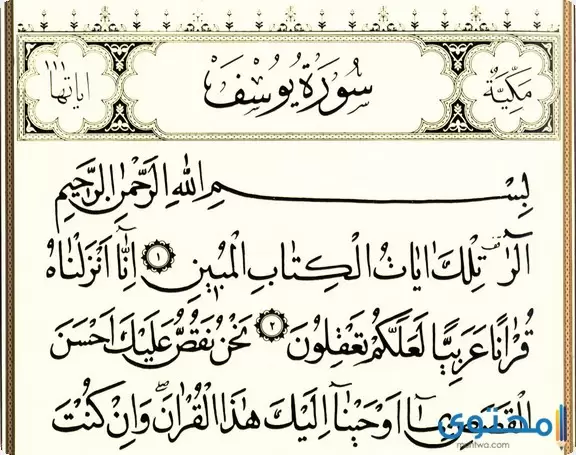 مكية سورة يوسف اياتها ١١١
بِسْمِ اللهِ الرَّحْمٰنِ الرَّحِيمِ
الٓرٰ تِلْكَ اٰيَاتُ الْكِتَابِ الْمُبِينِ ١ اِنَّٓا اَنْزَلْنَاهُ
قُرْاٰنًا عَرَبِيًّا لَعَلَّكُمْ تَعْقِلُونَ ٢ نَحْنُ نَقُصُّ عَلَيْكَ اَحْسَنَ
الْقَصَصِ بِمَٓا اَوْحَيْنَٓا اِلَيْكَ هٰذَا الْقُرْاٰنَ وَاِنْ كُنْتَ
محتوى
mhtwa.com